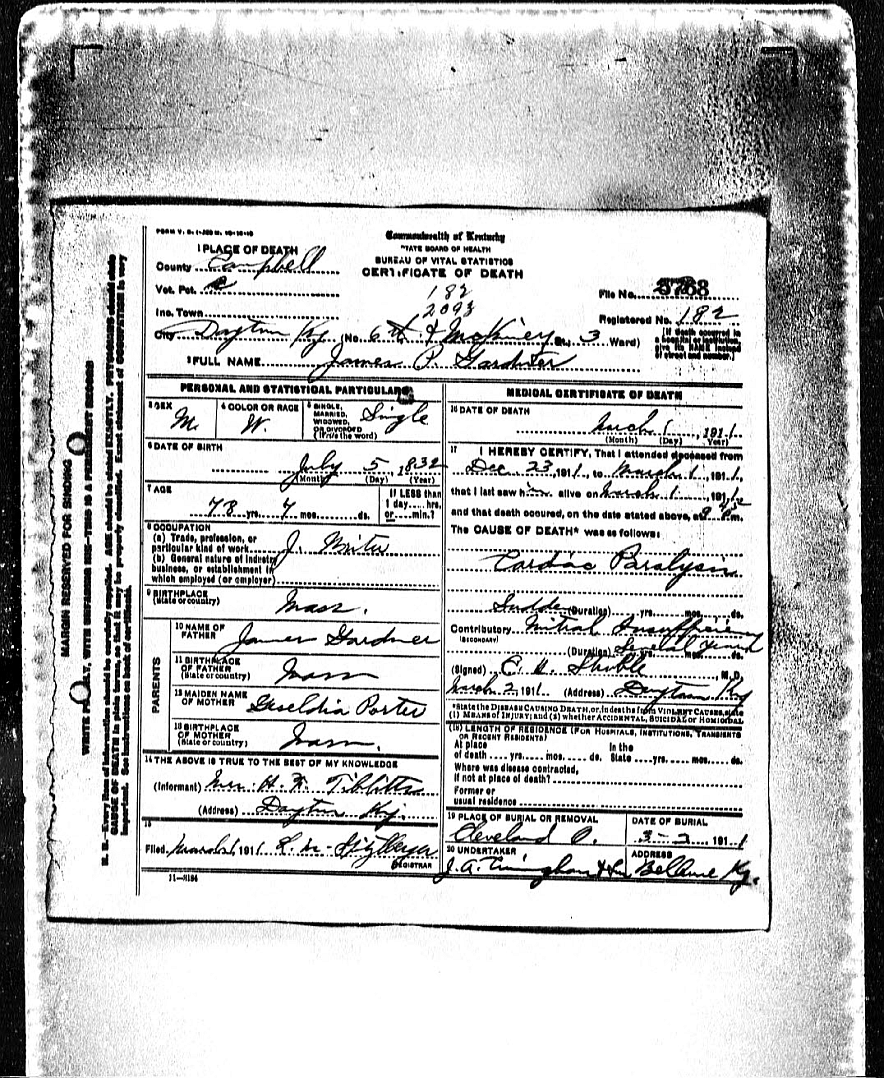 FORM V. S. 1-
Commonwealth of Kentucky
TATE BOARD OF HEALTH
BUREAU OF VITAL STATISTICS
CERTIFICATE OF DEATH
1 PLACE OF DEATH
County Campbell
Vot. Pct.
Inc. Town
182
2093
File No. 5768
Registered No. 182
City Dayton Ky (No. 6th & McKiney St., 3 Ward)
(If death occurred in a hospital or institution, give its NAME instead of street and number.)
2 FULL NAME James P. Gardner
PERSONAL AND STATISTICAL PARTICULARS
3 SEX M.
4 COLOR OR RACE W.
5 SINGLE, MARRIED, WIDOWED, OR DIVORCED (Write the word) Single
6 DATE OF BIRTH
July 5, 1832
(Month) (Day) (Year)
7 AGE
78 yrs. 7 mos. ds.
If LESS than 1 day.... hrs. or.... min.?
8 OCCUPATION
(a) Trade, profession, or particular kind of work
(b) General nature of industry business, or establishment in which employed (or employer)
9 BIRTHPLACE
(State or country) Mass.
PARENTS
10 NAME OF FATHER James Gardner
11 BIRTHPLACE OF FATHER (State or country) Mass
12 MAIDEN NAME OF MOTHER Porter
13 BIRTHPLACE OF MOTHER (State or country) Mass.
14 THE ABOVE IS TRUE TO THE BEST OF MY KNOWLEDGE
(Informant) Mrs. H. F. Tibbitts
(Address) Dayton Ky.
15
Filed March 1 1911 L. M.
REGISTRAR
11-3184
MEDICAL CERTIFICATE OF DEATH
16 DATE OF DEATH
March 1, 1911
(Month) (Day) Year)
17 I HEREBY CERTIFY, That I attended deceased from
Dec 23, 1911, to March 1, 1911,
that I last saw him alive on March 1, 1911,
and that death occured, on the date stated above, at m.
The CAUSE OF DEATH* was as follows:
Cardiac Paralysis
Sudden (Duration) yrs. mos. ds.
Contributory Mitral Insufficiency
(SECONDARY)
(Duration) Several Years yrs. mos. ds.
(Signed) M.D.
March 2, 1911 (Address) Dayton Ky
*State the DISEASE CAUSING DEATH, or, in deaths from VIOLENT CAUSES, state (1) MEANS OF INJURY; and (2) whether ACCIDENTAL, SUICIDAL or HOMICIDAL
(18) LENGTH OF RESIDENCE (FOR HOSPITALS, INSTITUTIONS, TRANSIENTS OR RECENT RESIDENTS)
At place of death .... yrs. .... mos. .... ds. In the State .... yrs. .... mos. .... ds.
Where was disease contracted, if not at place of death?
Former or usual residence
19 PLACE OF BURIAL OR REMOVAL
Cleveland O.
DATE OF BURIAL
3-2 1911
20 UNDERTAKER
J.A.
ADDRESS
Bellevue Ky.
MARGIN RESERVED FOR BINDING
N. B.—Every item of information should be carefully supplied. AGE should be stated EXACTLY. PHYSICIANS should state
CAUSE OF DEATH in plain terms, so that it may be properly classified. Exact statement of OCCUPATION is very
important. See instructions on back of certificate.